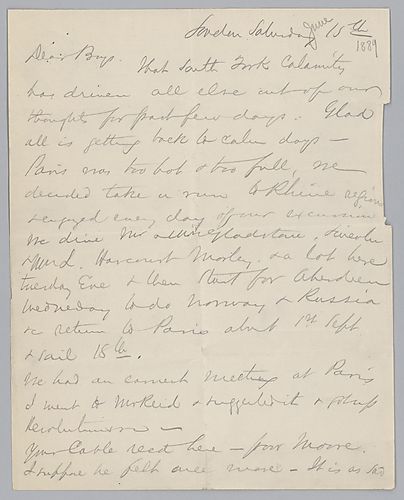 London Saturday June 15th
1889
Dear Boys. That South Fork Calamity
has driven all else out of our
thoughts for past few days. Glad
all is getting back to calm days —
Paris was too hot & too full, we
decided take a run to Rhine region
& enjoyed every day of our excursion
We dine Mr & Mrs Gladstone, Lincoln
& Harcourt Morley. & a lot here
Tuesday Eve & then start for Aberdeen
Wednesday to do Norway & Russia
& return to Paris about 1st Sept
& sail 18th.
We had an earnest meeting at Paris
I went to Mr Reid & suggested it & got up
Resolutions —
Your Cable recd here — poor Moore.
I suppose he felt once more — It is as